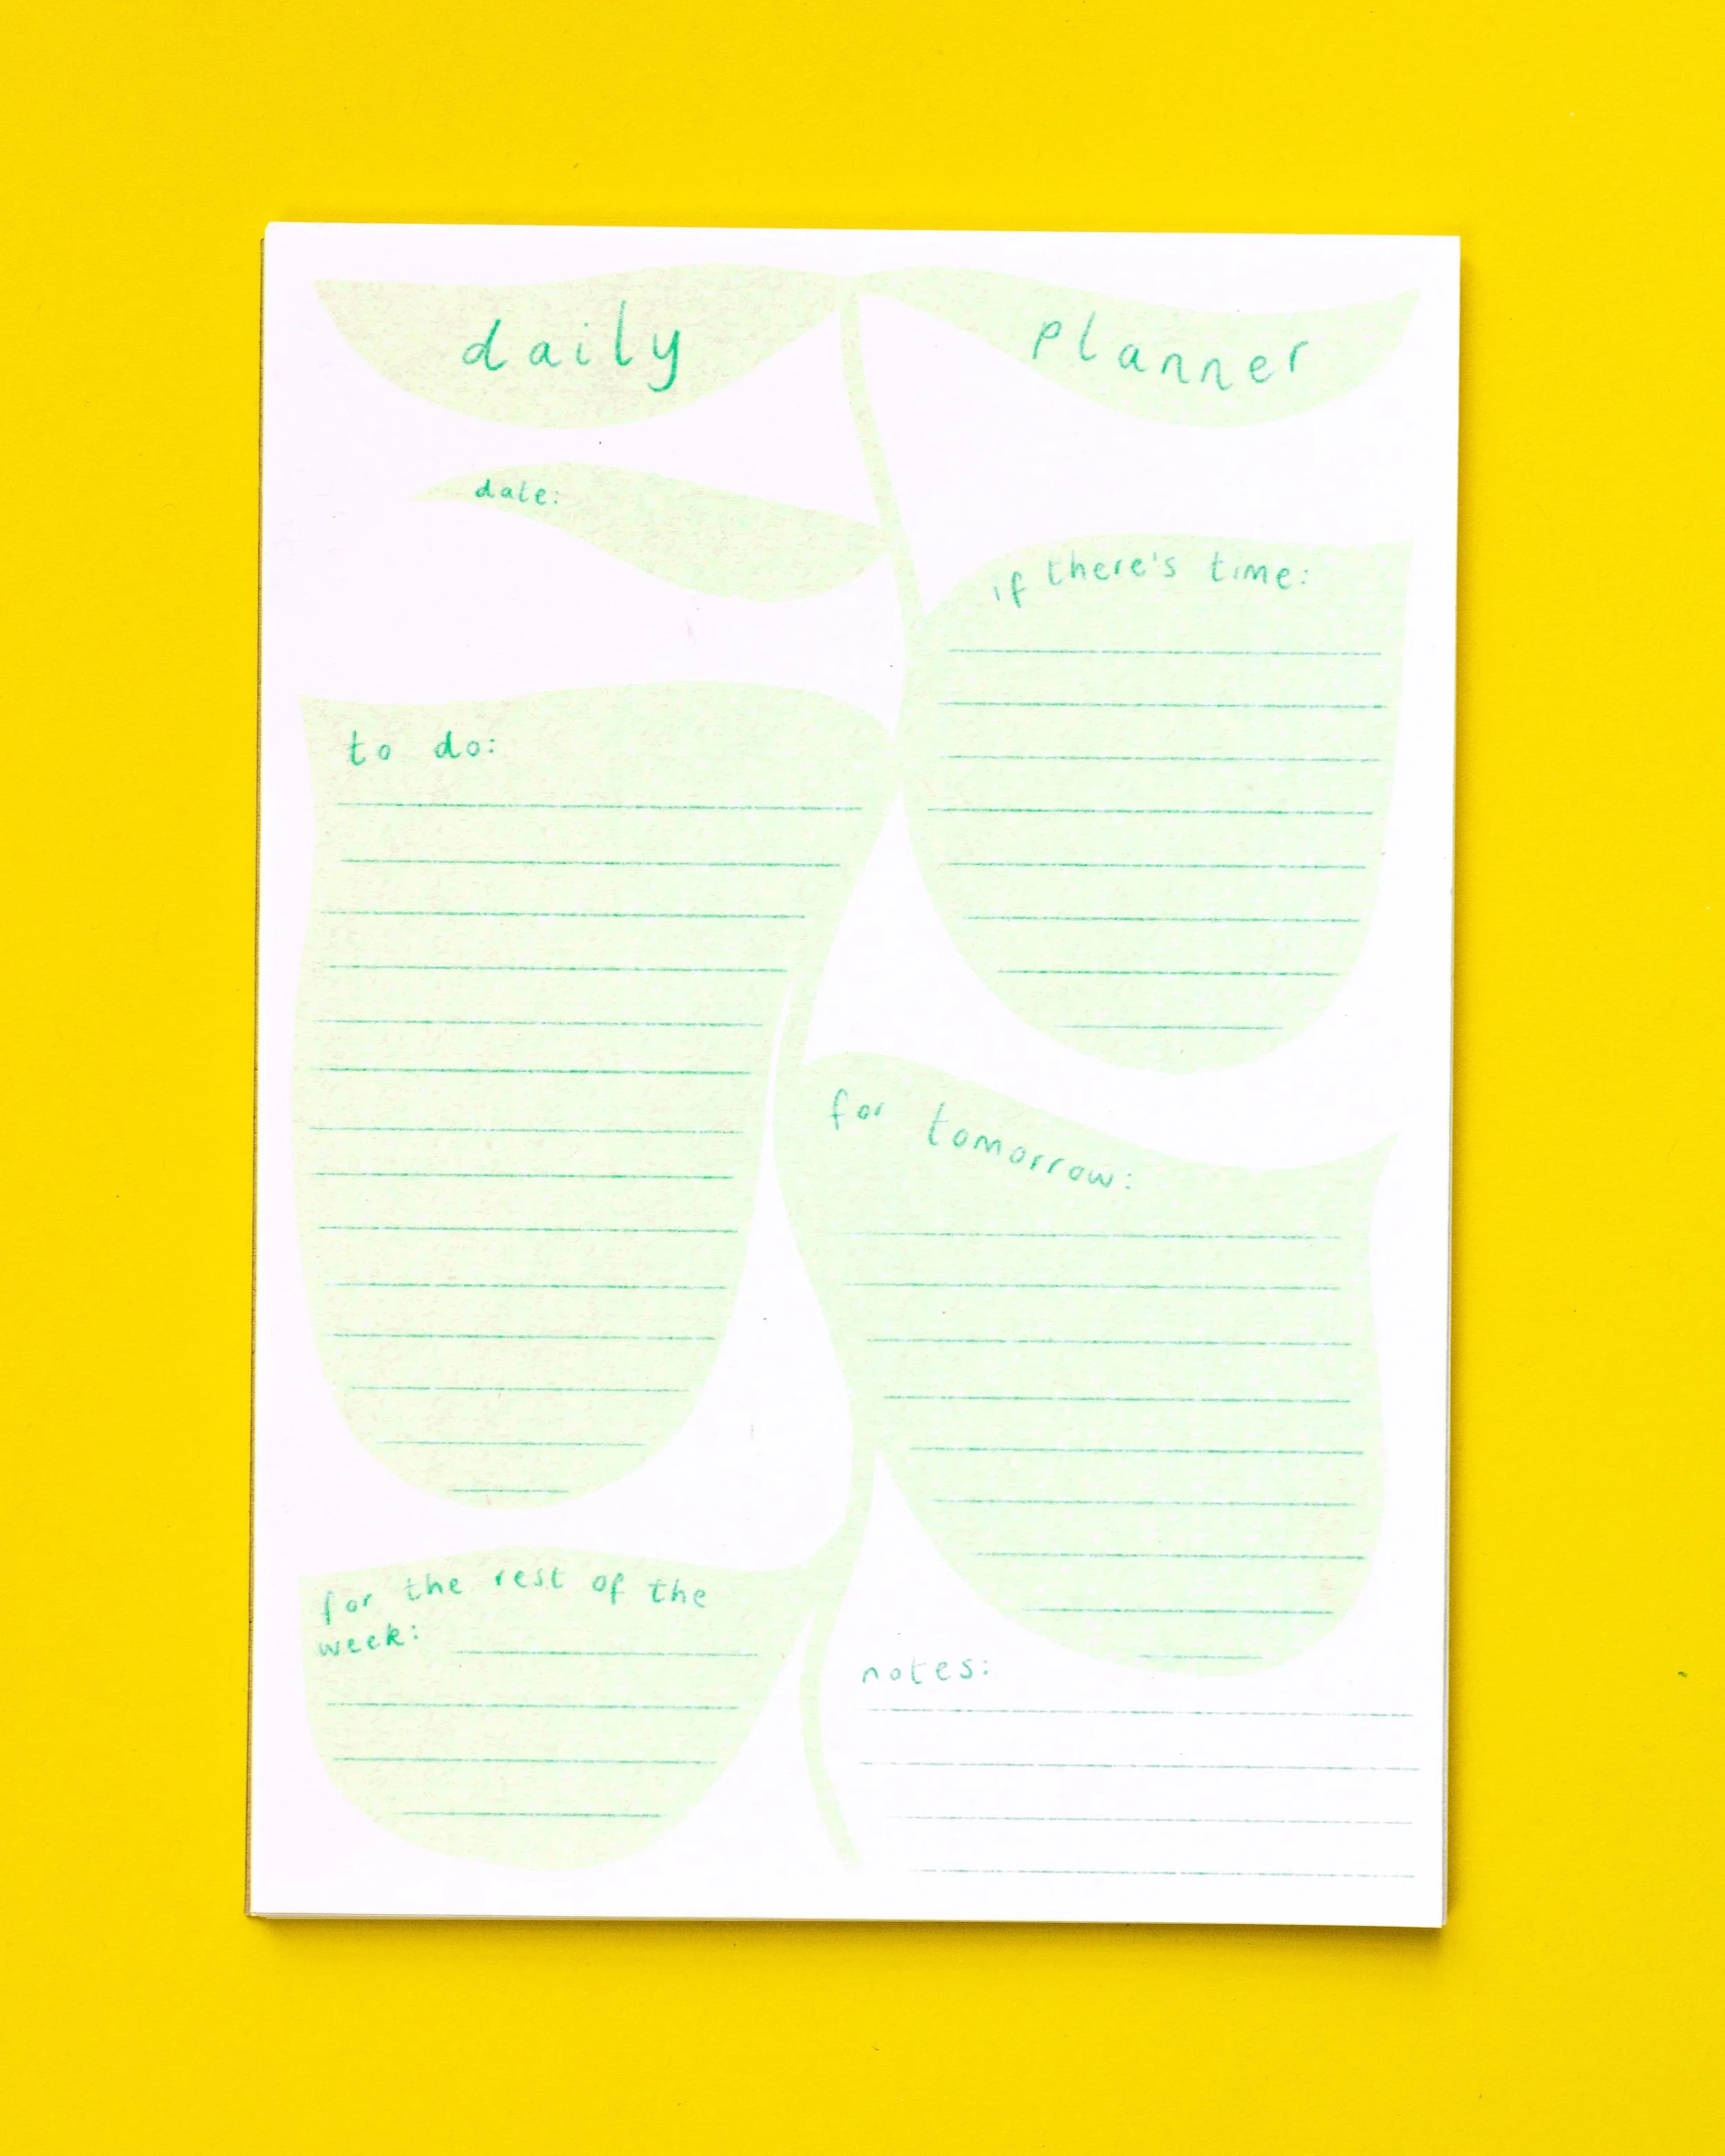 daily planner
date:
if there's time:
to do:
for tomorrow:
for the rest of the
week:
notes: